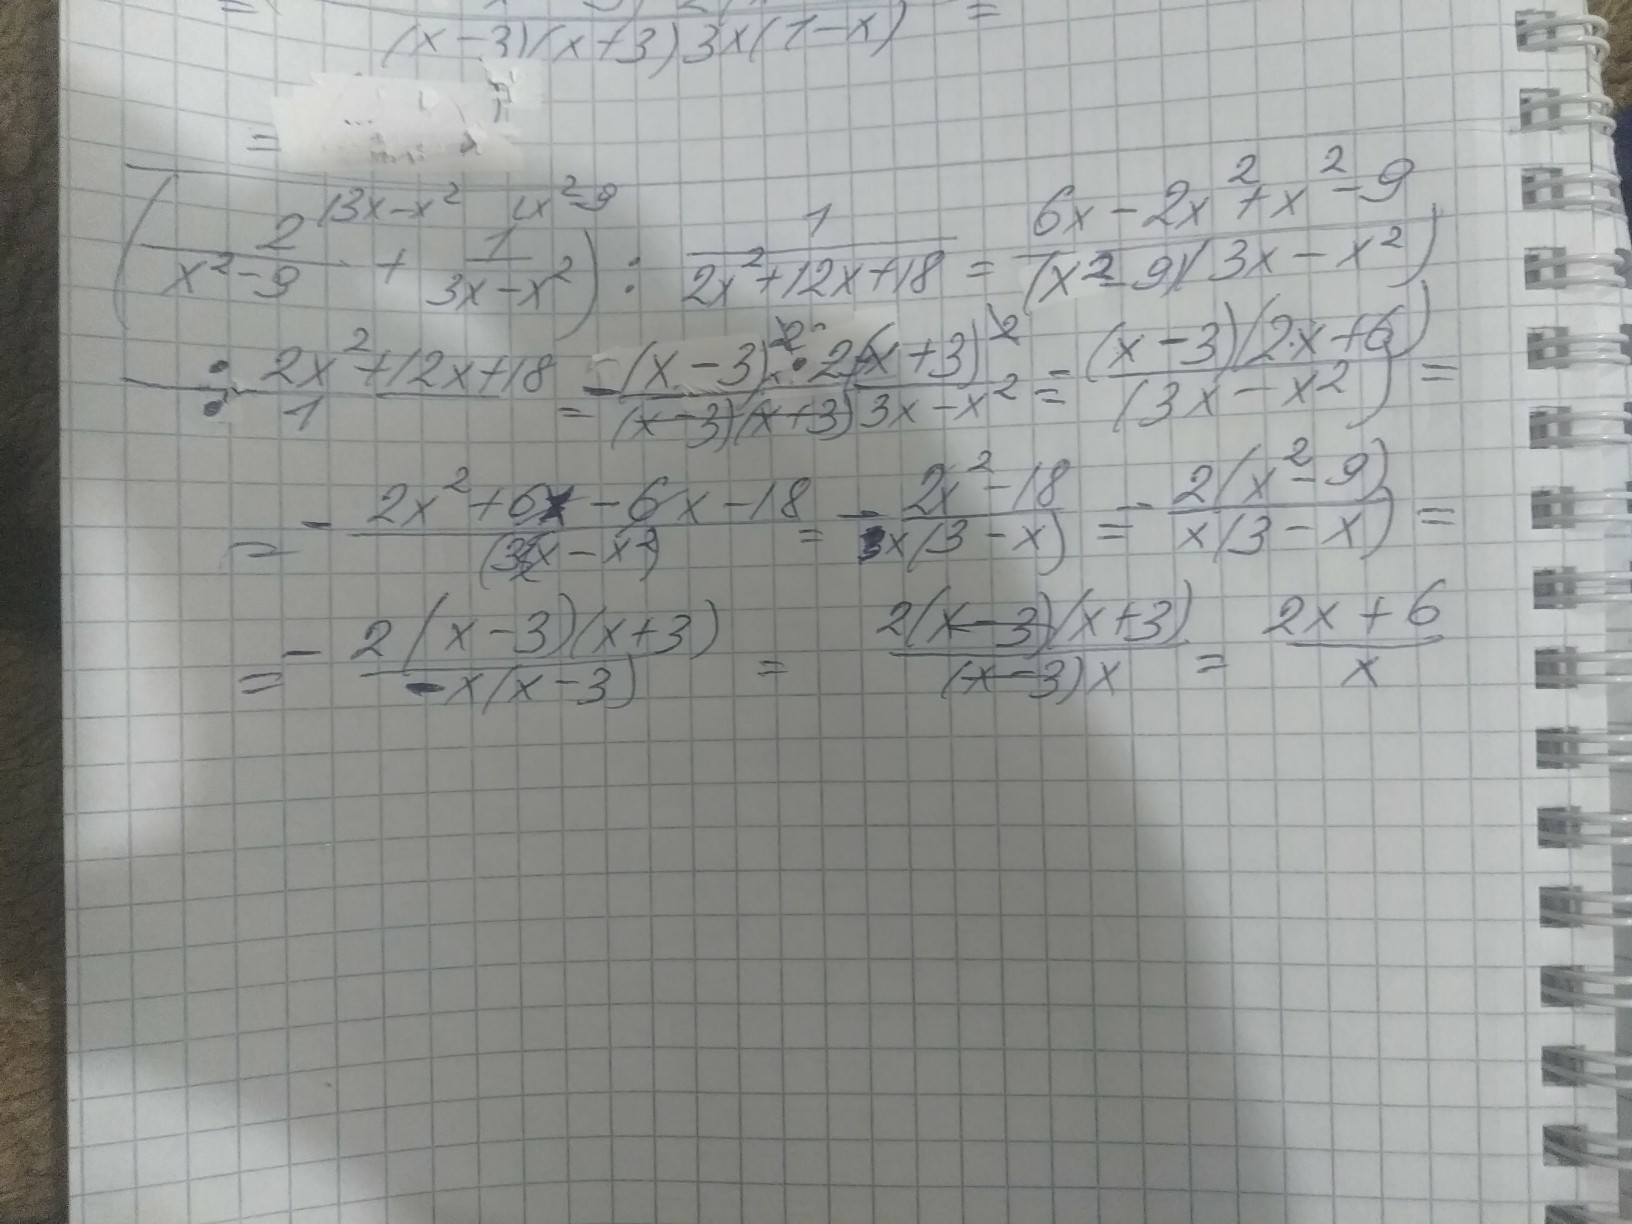 (x-3)(x+3)3x(1-x) =
=
(2/(x²-9) |3x-x² + 1/(3x-x²) |x²-9) : 1/(2x²+12x+18) = (6x-2x²+x²-9)/((x²-9)(3x-x²))
: (2x²+12x+18)/1 = -((x-3)²·2(x+3)²)/((x-3)(x+3)3x-x²) = -((x-3)(2x+6))/((3x-x²)) =
= -(2x²+6x-6x-18)/((3x-x²)) = -(2x²-18)/(x(3-x)) = -(2(x²-9))/(x(3-x)) =
= -(2(x-3)(x+3))/(-x(x-3)) = (2(x-3)(x+3))/((x-3)x) = (2x+6)/x